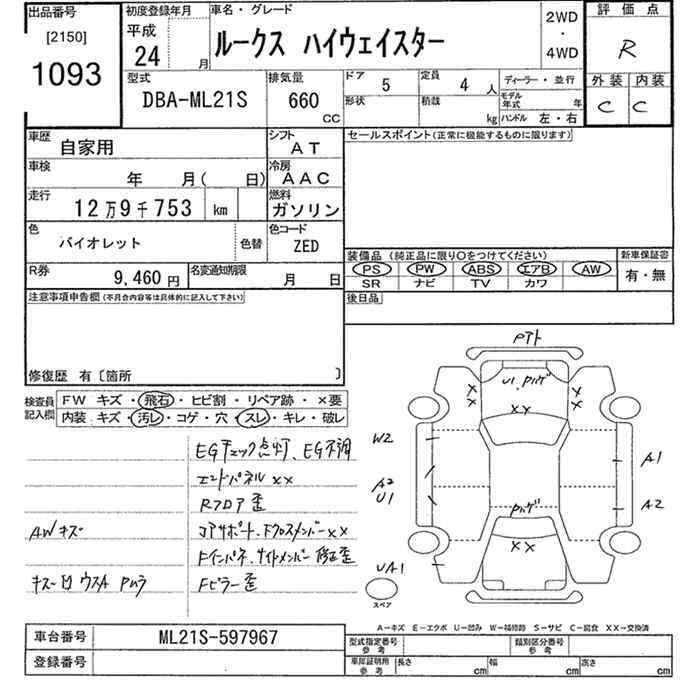 出品番号
[2150]
1093
初度登録年月
平成
24 月
車名・グレード
ルークス ハイウェイスター
2WD
・
4WD
評価点
R
外装 内装
C C
型式
DBA-ML21S
排気量
660
CC
ドア 5
定員 4 人
形状
積載 kg
ディーラー・並行
モデル年式 年
ハンドル 左・右
車歴 自家用
シフト AT
車検 年 月( 日)
冷房 AAC
走行 12万9千753 km
燃料 ガソリン
色 バイオレット 色替
色コード ZED
R券 9,460 円
名変通知期限 月 日
セールスポイント(正常に機能するものに限ります)
装備品 (純正品に限り○をつけてください)
PS PW ABS エアB AW
SR ナビ TV カワ
新車保証書
有・無
後日品
注意事項申告欄(不具合内容等は具体的に記入して下さい)
修復歴 有〔箇所 〕
検査員記入欄
FW キズ・飛石・ヒビ割・リペア跡・×要
内装・キズ・汚レ・コゲ・穴・スレ・キレ・破レ
EGチェック点灯、EG不調
エンドパネル××
Rフロア歪
AWキズ
コアサポート、Fクロスメンバー××
Fインパネ、サイドメンバー修正歪
キズ凹 ウスA Pハゲ
Fピラー歪
Pアト
U1、Pハゲ
××
××
××
W2
A2
U1
UA1
A1
A2
Pハゲ
××
スペア
A-キズ E-エクボ U-凹み W-補修跡 S-サビ C-腐食 XX-交換済
車台番号 ML21S-597967
登録番号
型式指定番号
参考
類別区分番号
参考
車庫証明用
参考
長さ cm
幅 cm
高さ cm